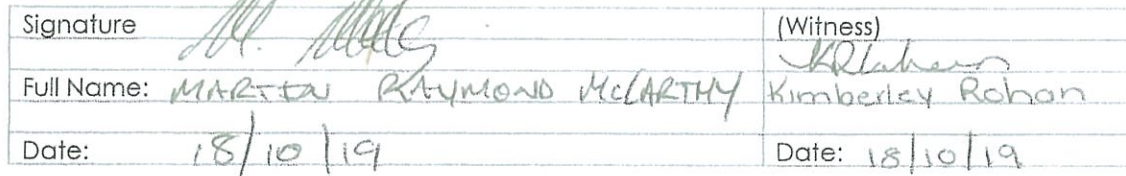 Signature (Witness)
Full Name: MARTIN RAYMOND McCARTHY Kimberley Rohan
Date: 18/10/19 Date: 18/10/19